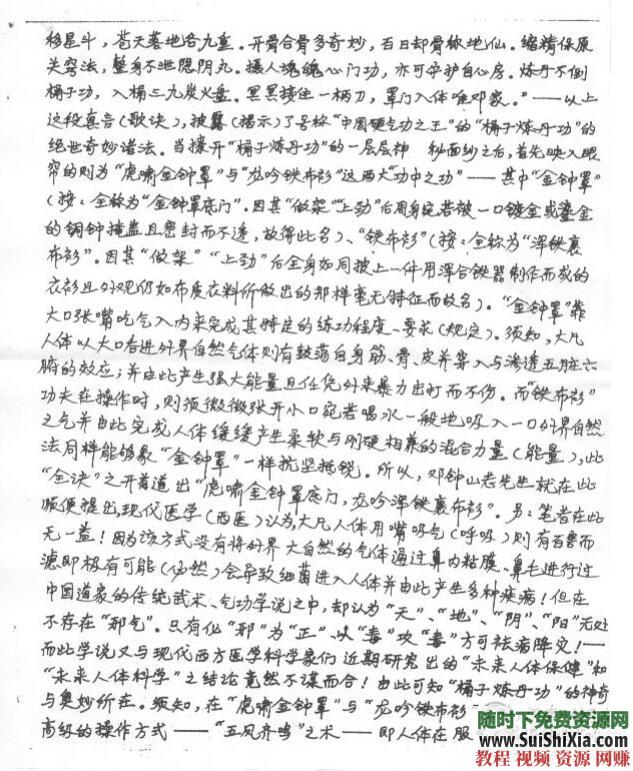 移星斗，苍天墓地各九重。开骨合骨多奇妙，百日却骨称地仙。缩精保原
关穹法，整身不泄隐阴丸。摄人魂魄心门功，亦可守护自心房。炼丹不倒
桶子功，入桶三九炭火盘。黑黑接住一柄刀，罩门入体唯邓家。”——以上
这段真言（歌诀），披露（揭示）了号称“中国硬气功之王”的“桶子炼丹功”的
绝世奇妙诸法。当撩开“桶子炼丹功”的一层层神 秘面纱之后，首先映入眼
帘的则为“虎啸金钟罩”与“龙吟铁布衫”这两大“功中之功”——其中“金钟罩”
（按：全称为“金钟罩底门”。因其“做架”“上劲”后周身宛若被一口镀金或鎏金
的铜钟掩盖且密封而不透，故得此名）、“铁布衫”（按：全称为“浑铁裹
布衫”。因其“做架”“上劲”后全身如同披上一件用浑合铁器制作而成的
衣衫且外观仍如布质衣料所做出的那样毫无特征而故名）。“金钟罩”靠
大口张嘴吃气入内来完成其特定的练功程度一要求（规定）。须知，大凡
人体以大口吞进外界自然气体则有鼓荡自身筋、骨、皮并穿入与渗透五脏六
腑的效应；并由此产生强大能量且任凭外来暴力击打而不伤。而“铁布衫”
功夫在操作时，则须微微张开小口宛若喝水一般地吸入一口外界自然
之气并由此完成人体缓缓产生柔软与刚硬相兼的混合力量（能量），此
法同样能够象“金钟罩”一样抗坚抵锐。所以，邓钟山老先生就在此
“全诀”之开首道出“虎啸金钟罩底门，龙吟浑铁裹布衫”。另：笔者在此
顺便提出，现代医学（西医）认为大凡人体用嘴吸气（呼吸）则有百害而
无一益！因为该方式没有将外界大自然的气体通过鼻内粘膜、鼻毛进行过
滤即极有可能（必然）会导致细菌进入人体并由此产生多种疾病！但在
中国道家的传统武术、气功学说之中，却认为“天”、“地”、“阴”、“阳”无处
不存在“邪气”。只有化“邪”为“正”、以“毒”攻“毒”方可祛病降灾！——
而此学说又与现代西方医学科学家们 近期研究出的“未来人体保健”和
“未来人体科学”之结论竟然不谋而合！由此可知“桶子炼丹功”的神奇
与奥妙所在。须知，在“虎啸金钟罩”与“龙吟铁布衫”
高级的操作方式——“五凤齐鸣”之术——即人体在服
随时下免费资源网
www.SuiShiXia.com
教程 视频 资源 网赚